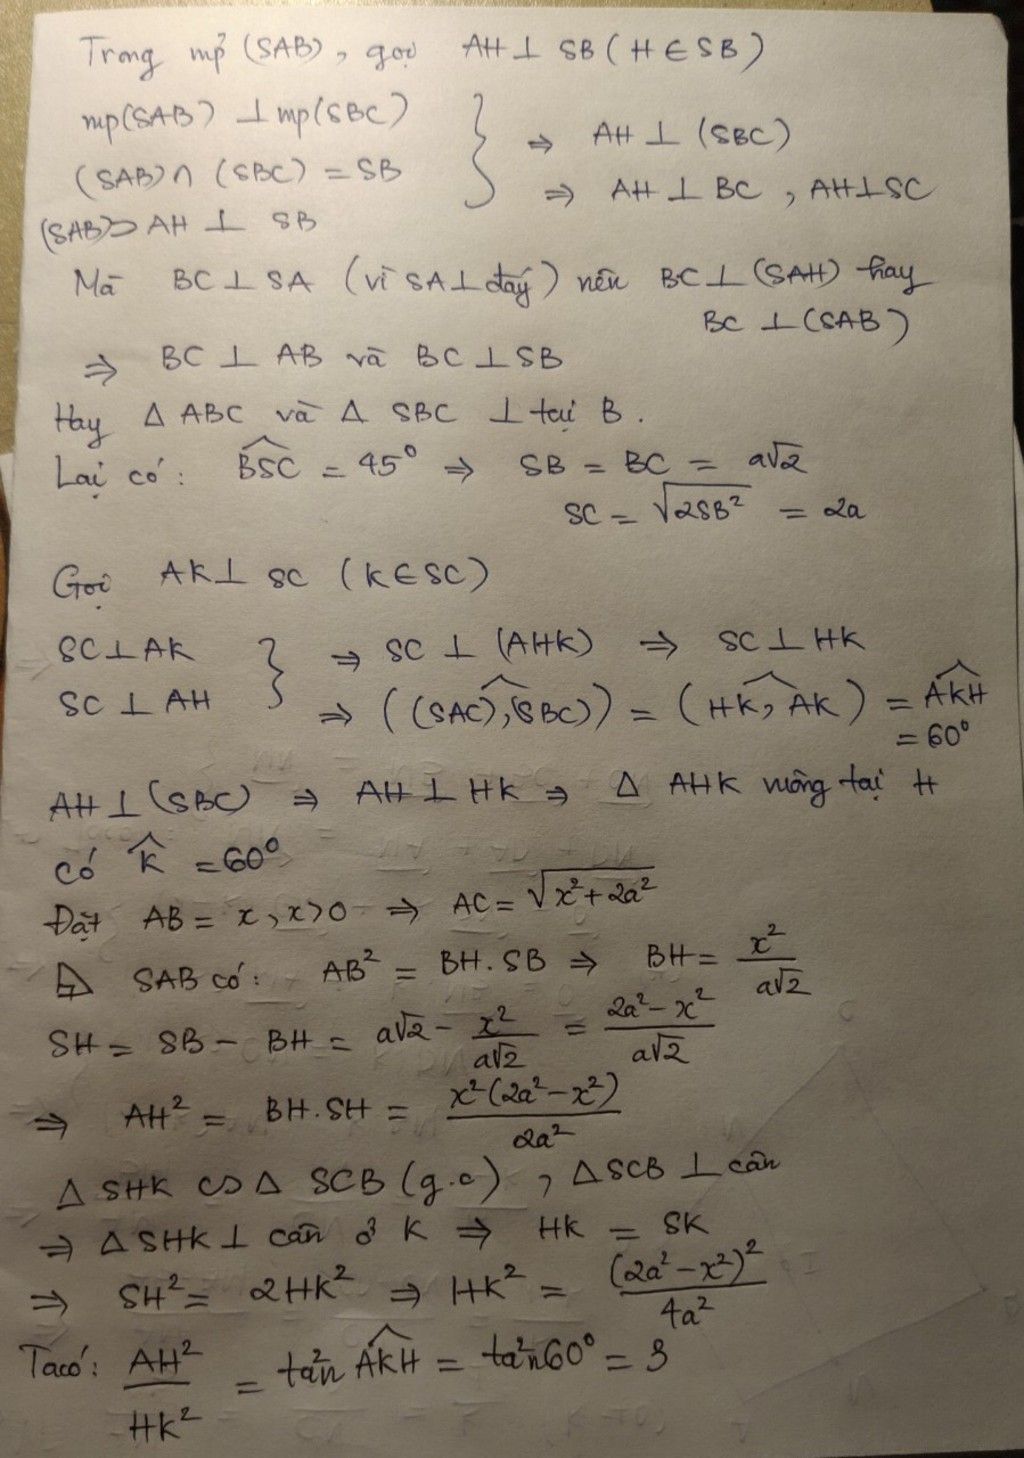 Trong mp (SAB), gọi AH ⊥ SB (H ∈ SB)
mp(SAB) ⊥ mp(SBC)
(SAB) ∩ (SBC) = SB
(SAB) ⊃ AH ⊥ SB
} ⇒ AH ⊥ (SBC)
⇒ AH ⊥ BC, AH ⊥ SC
Mà BC ⊥ SA (vì SA ⊥ đáy) nên BC ⊥ (SAH) hay
BC ⊥ (SAB)
⇒ BC ⊥ AB và BC ⊥ SB
Hay Δ ABC và Δ SBC ⊥ tại B.
Lại có: \widehat{BSC} = 45° ⇒ SB = BC = a√2
SC = √(2SB²) = 2a
Gọi AK ⊥ SC (K ∈ SC)
SC ⊥ AK
SC ⊥ AH
} ⇒ SC ⊥ (AHK) ⇒ SC ⊥ HK
⇒ (\widehat{(SAC),(SBC)}) = (\widehat{HK, AK}) = \widehat{AKH}
= 60°
AH ⊥ (SBC) ⇒ AH ⊥ HK ⇒ Δ AHK vuông tại H
có \widehat{K} = 60°
Đặt AB = x, x>0 ⇒ AC = √(x²+2a²)
⊿ SAB có: AB² = BH.SB ⇒ BH = x²/(a√2)
SH = SB − BH = a√2 − x²/(a√2) = (2a²−x²)/(a√2)
⇒ AH² = BH.SH = x²(2a²−x²)/(2a²)
Δ SHK ∽ Δ SCB (g.c), Δ SCB ⊥ cân
⇒ Δ SHK ⊥ cân ở K ⇒ HK = SK
⇒ SH² = 2HK² ⇒ HK² = (2a²−x²)²/(4a²)
Ta có: AH²/HK² = tan² \widehat{AKH} = tan²60° = 3